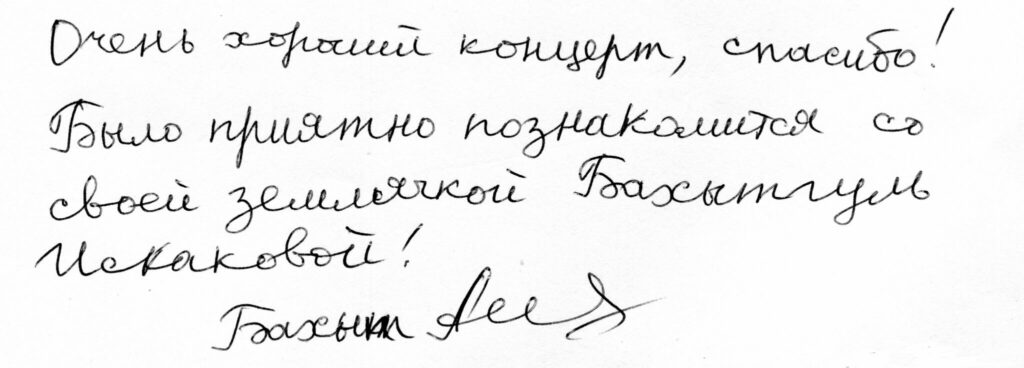 Очень хороший концерт, спасибо!
Было приятно познакомится со
своей землячкой Бахытгуль
Искаковой!
Бахыт